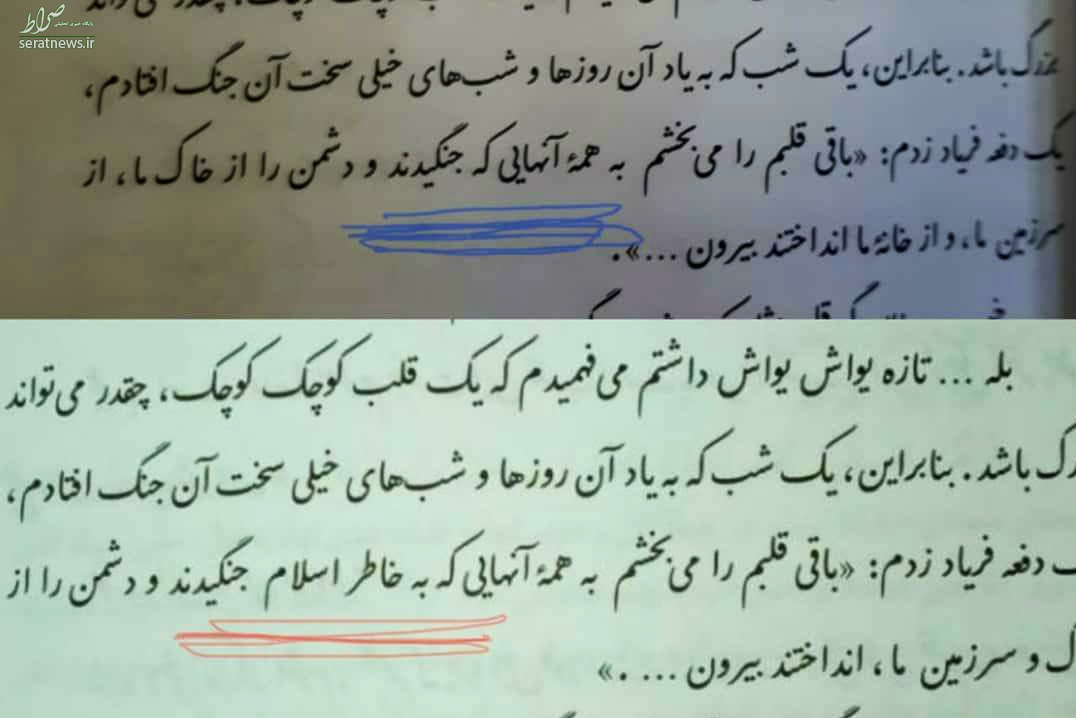 صراط
پایگاه خبری تحلیلی
seratnews.ir
بزرگ باشد. بنابراین، یک شب که به یاد آن روزها و شب‌های خیلی سخت آن جنگ افتادم،
یک دفعه فریاد زدم: «باقی قلبم را می‌بخشم به همهٔ آنهایی که جنگیدند و دشمن را از خاک ما، از
سرزمین ما، و از خانهٔ ما انداختند بیرون ...».
بله ... تازه یواش یواش داشتم می‌فهمیدم که یک قلب کوچک کوچک، چقدر می‌تواند
باشد. بنابراین، یک شب که به یاد آن روزها و شب‌های خیلی سخت آن جنگ افتادم،
دفعه فریاد زدم: «باقی قلبم را می‌بخشم به همهٔ آنهایی که به خاطر اسلام جنگیدند و دشمن را از
و سرزمین ما، انداختند بیرون ... .»